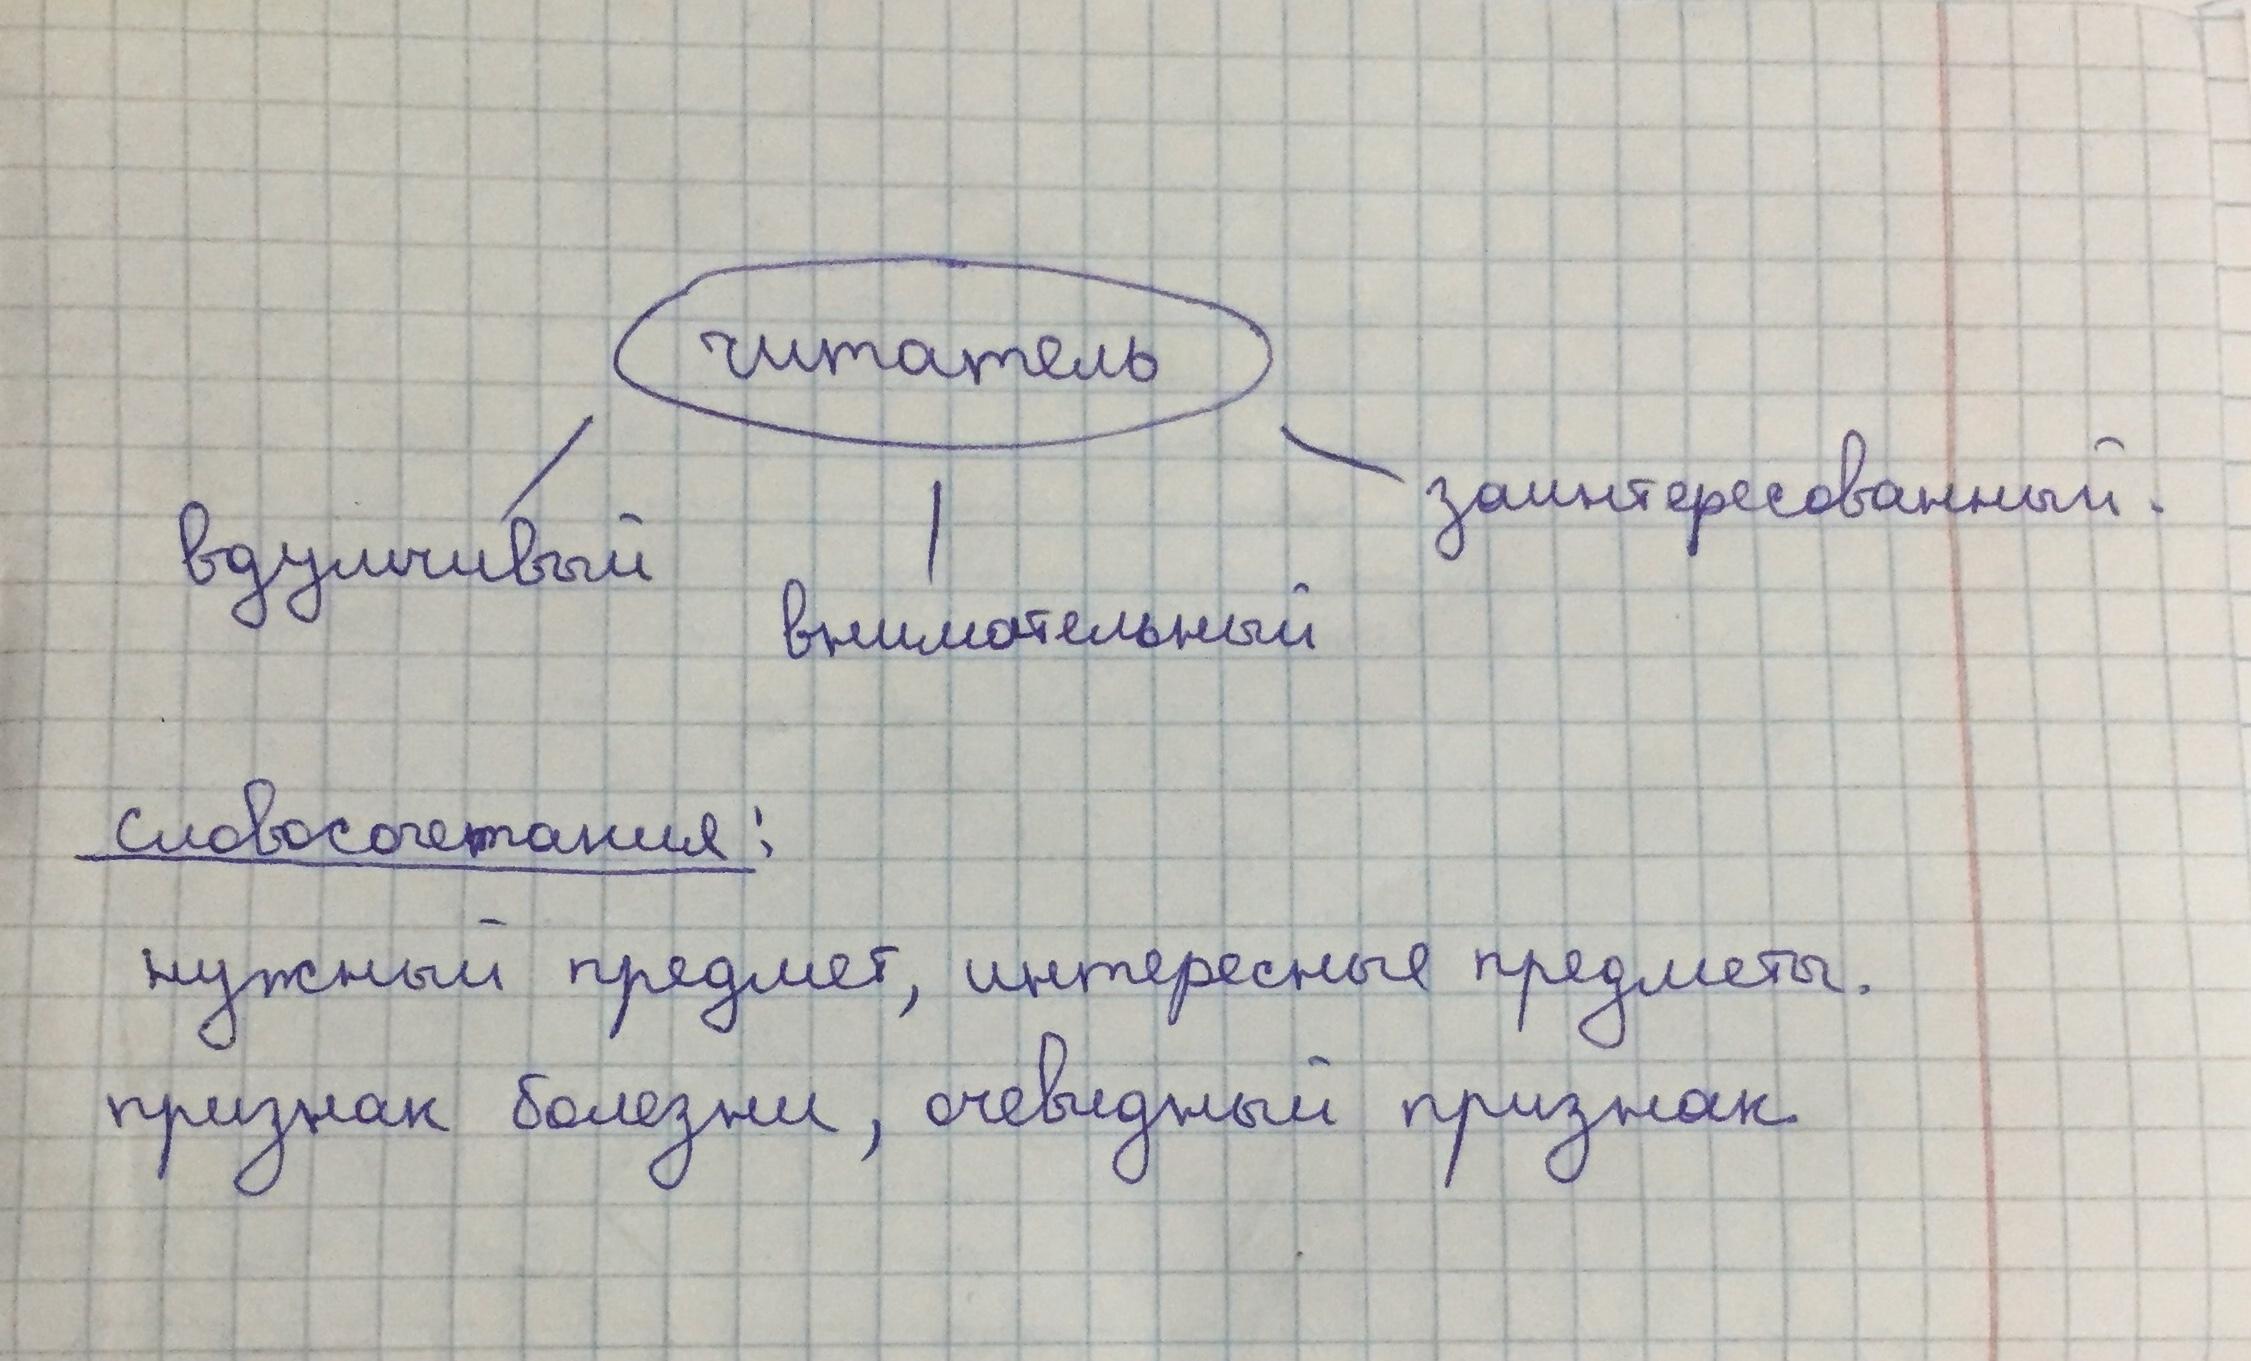 читатель
вдумчивый
внимательный
заинтересованный.
словосочетания:
нужный предмет, интересные предметы.
признак болезни, очевидный признак.